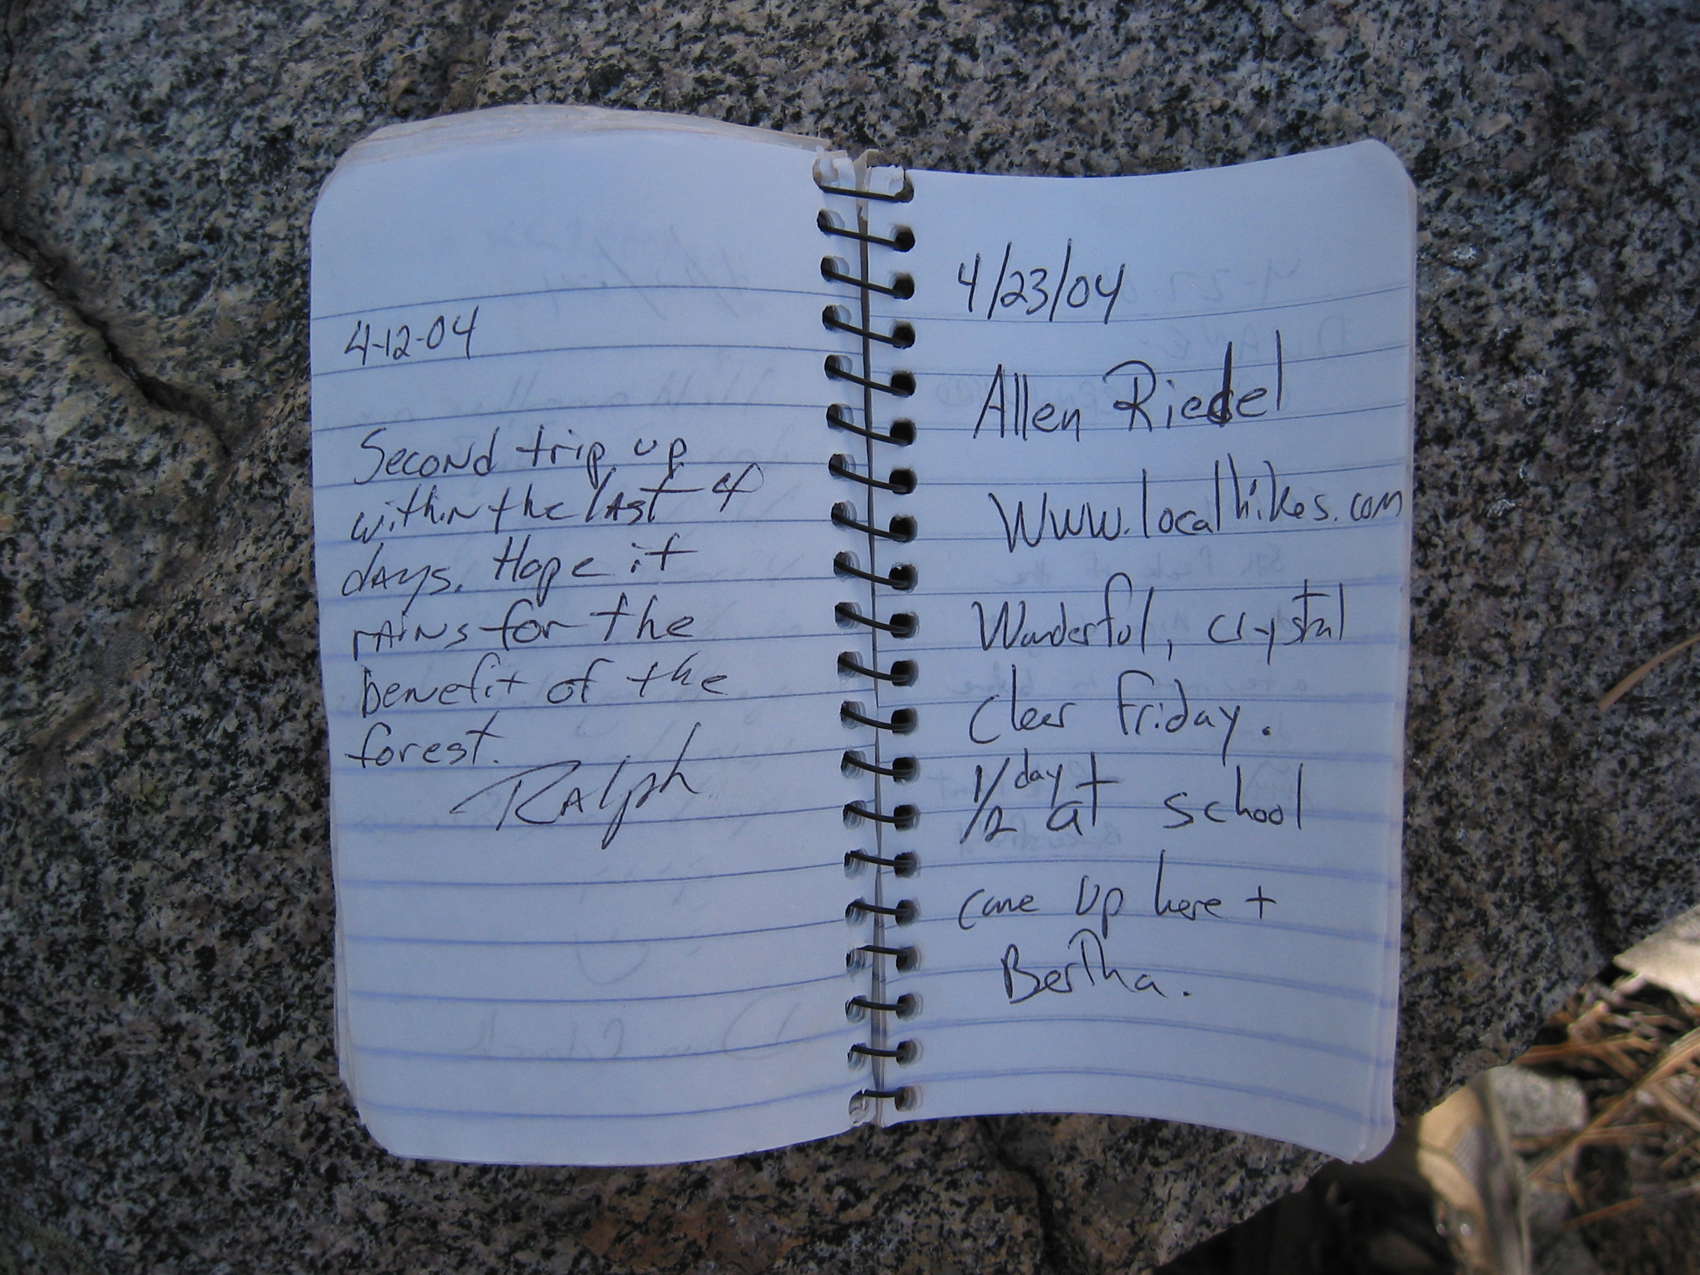 4-12-04
Second trip up
within the last 4
days. Hope it
rains for the
benefit of the
forest.
Ralph
4/23/04
Allen Riedel
www.localhikes.com
Wonderful, crystal
Clear Friday.
1/2 day at school
came up here +
Bertha.